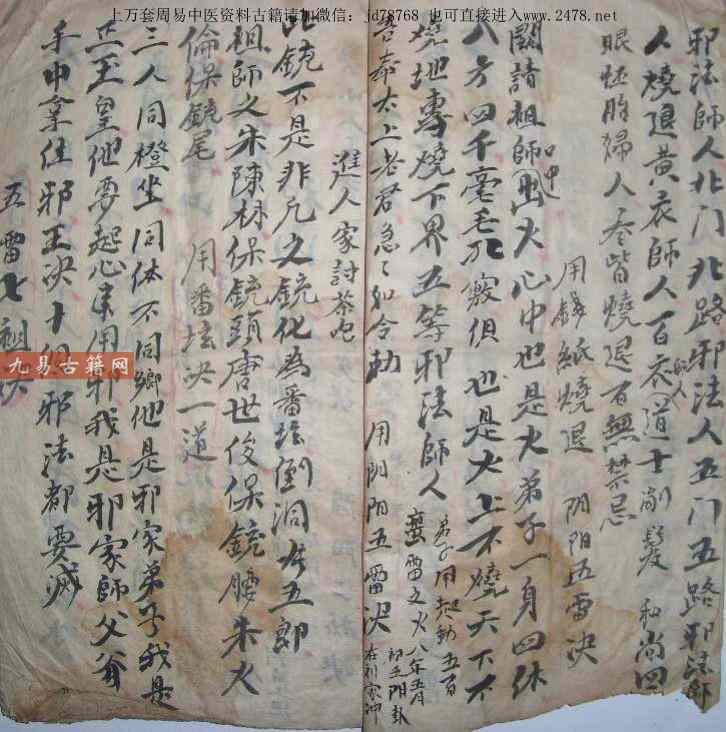 上万套周易中医资料古籍请加微信：jd78768 也可直接进入www.2478.net
邪法師人北门北路邪法人五门五路邪法師
人燒退黄衣師人百衣道士削髮和尚四
眼怀胎婦人 皆燒退百無禁忌
用錢紙燒退 阴阳五雷决
口中
闗請祖師 火心中也是火弟子一身四体
八方四千毫毛孔竅俱也是火上不燒天下不
燒地專燒下界五等邪法師人
弟子用起動五百
蛮雷之火八年五月
吾奉太上老君急々如令勅 用阴阳五雷决
進人家討茶吃
此鏡不是非凡之鏡化為番坛倒洞 五郎
祖師之朱陳林保鏡頭唐世俊保鏡腰朱火
倫保鏡尾 用番坛决一道
三人同橙坐同体不同鄉他是邪家弟子我是
玉皇他要起心来用邪我是邪家師父爺
手中拿住邪王决十 邪法都要滅
五雷七祖决
九易古籍网